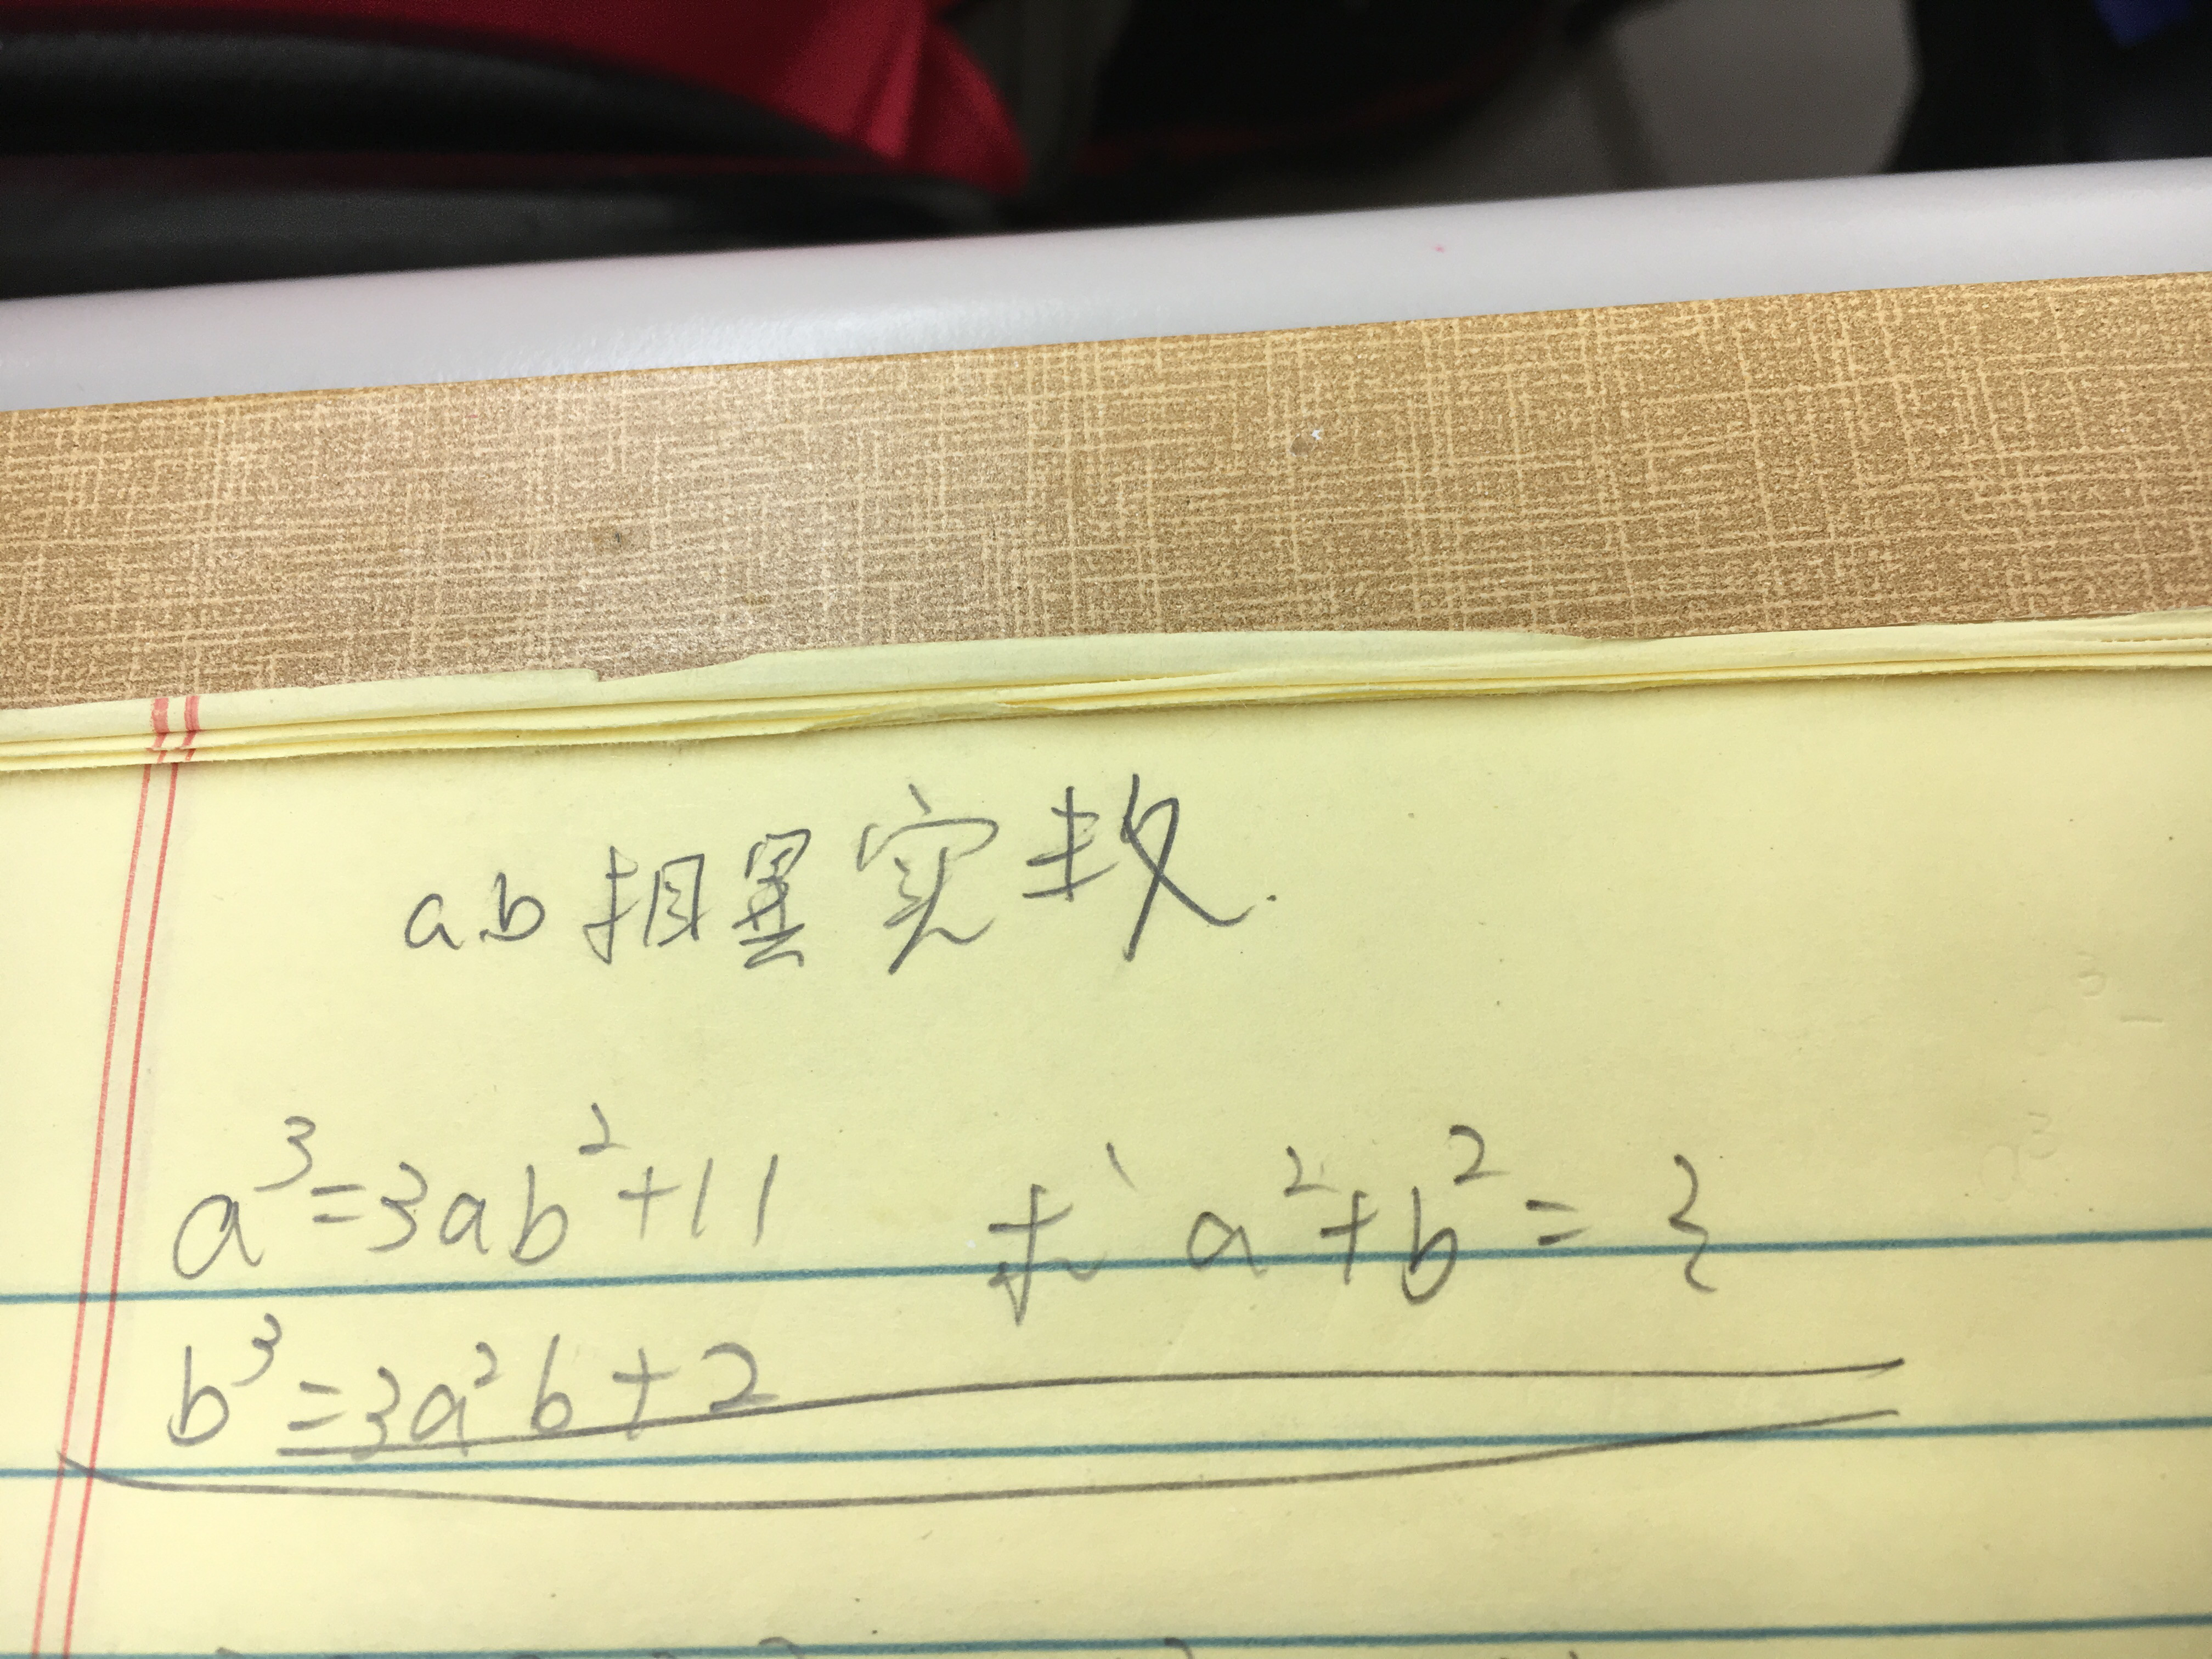 ab 相異实数.
a³=3ab²+11 求 a²+b²=?
b³=3a²b+2